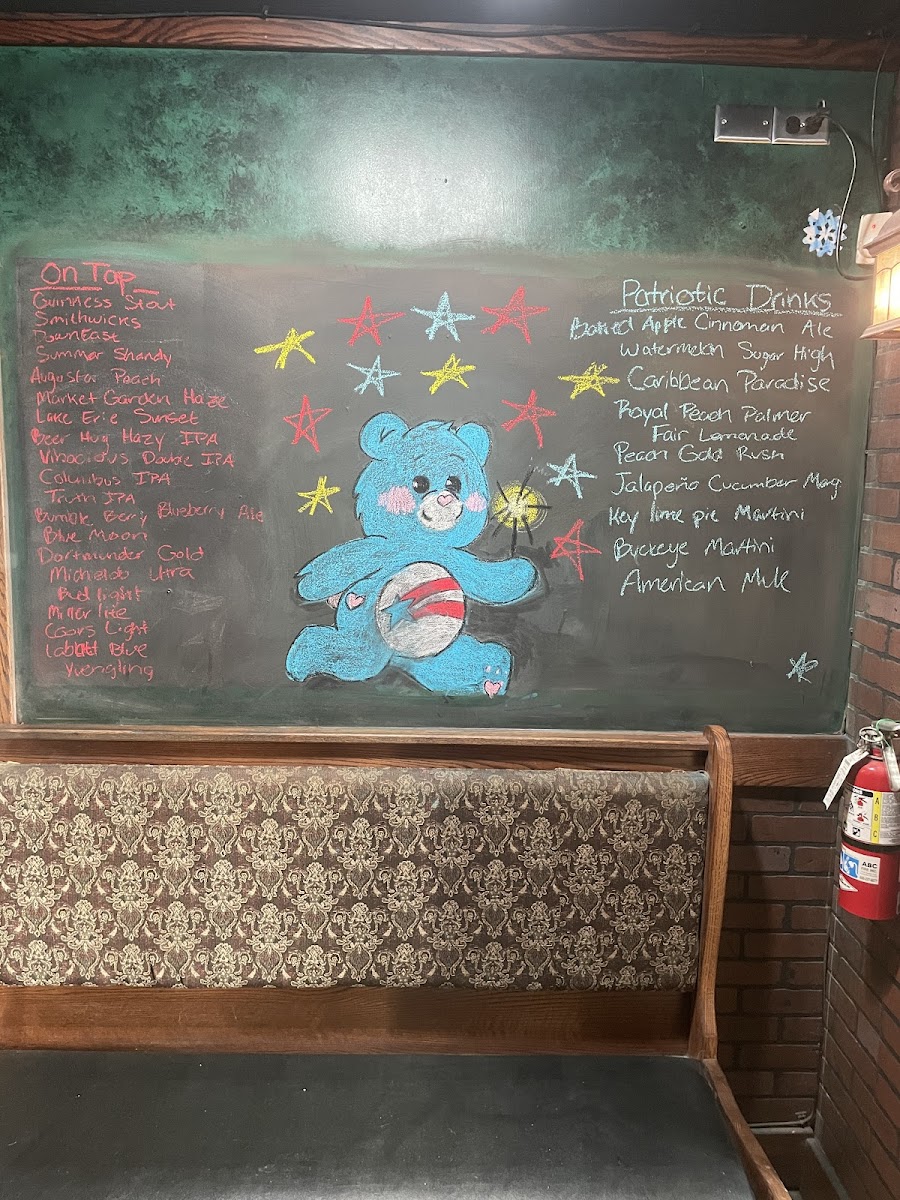 On Tap
Guinness Stout
Smithwicks
DownEast
Summer Shandy
Augusta Peach
Market Garden Haze
Lake Erie Sunset
Beer Hug Hazy IPA
Vibacious Double IPA
Columbus IPA
Truth IPA
Bumble Berry Blueberry Ale
Blue Moon
Dortmunder Gold
Michelob Ultra
Bud light
Miller lite
Coors Light
labatt Blue
Yuengling
Patriotic Drinks
Baked Apple Cinnamon Ale
Watermelon Sugar High
Caribbean Paradise
Royal Peach Palmer
Fair Lemonade
Peach Gold Rush
Jalapeño Cucumber Marg
Key lime pie Martini
Buckeye Martini
American Mule
A
B
C
ABC